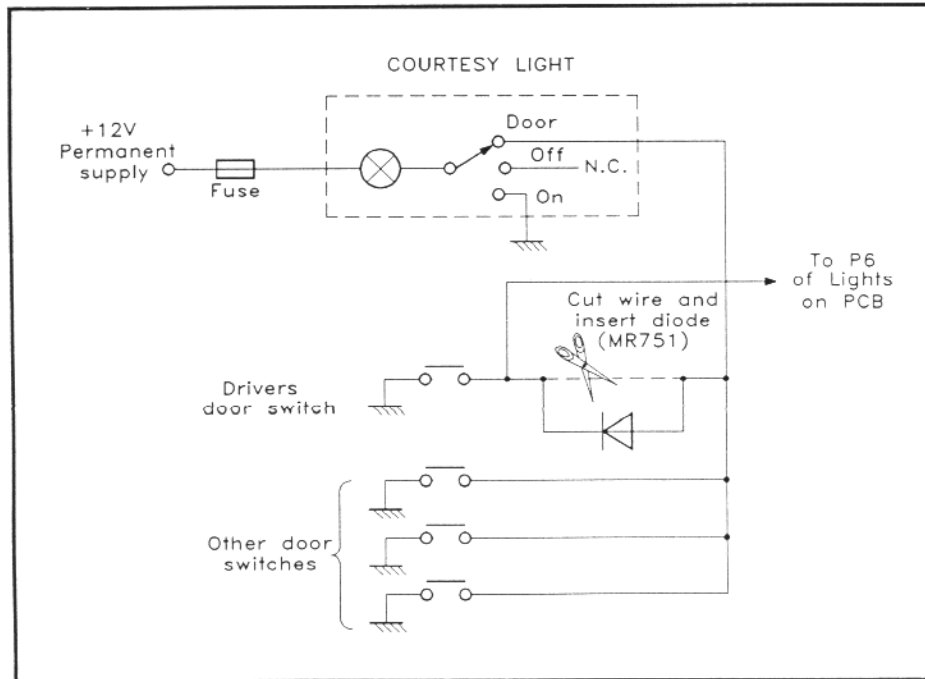 COURTESY LIGHT
+12V
Permanent
supply
Fuse
Door
Off
N.C.
On
To P6
of Lights
on PCB
Cut wire and
insert diode
(MR751)
Drivers
door switch
Other door
switches